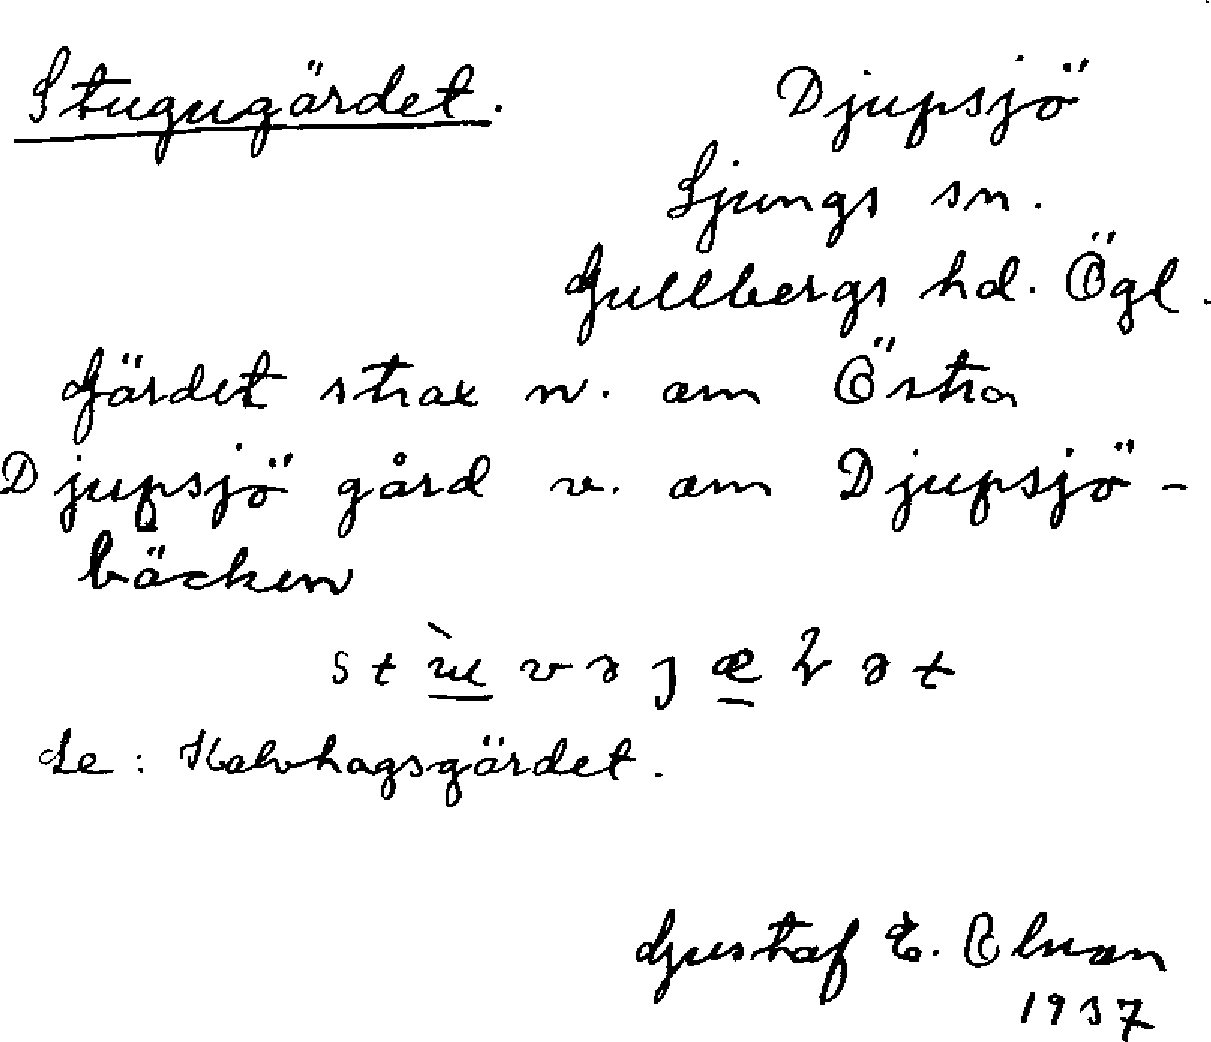 Stugugärdet. Djupsjö
Ljungs sn.
Gullbergs hd. Ögl.
Gärdet strax n. om Östra
Djupsjö gård v. om Djupsjö-
bäcken
Se: Kalvhagsgärdet.
Gustaf E. Olsson
1937